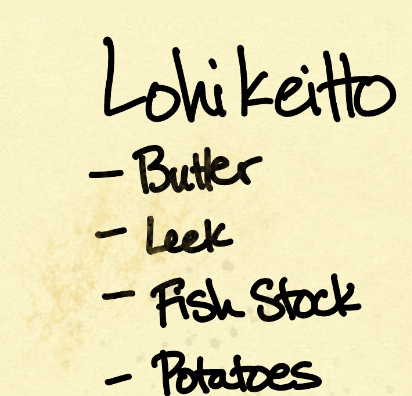 Lohikeitto
- Butter
- Leek
- Fish Stock
- Potatoes